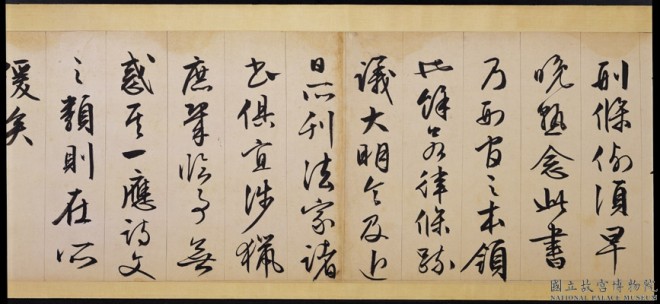 刑條例須早
晚熟念此書
乃刑官之本領
此餘若律條疏
議大明令及近
日所刊法家諸
書俱宜涉獵
庶幾臨事無
惑耳一應詩文
之類則在所
緩矣
國立故宮博物院
NATIONAL PALACE MUSEUM